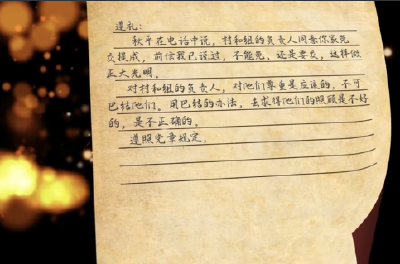 遵礼：
秋千在电话中说，村和组的负责人同意你家免
交提成，前信我已说过，不能免，还是要交，这样做
正大光明。
对村和组的负责人，对他们尊重是应该的，不可
巴结他们。用巴结的办法，去求得他们的照顾是不好
的，是不正确的。
遵照党章规定。